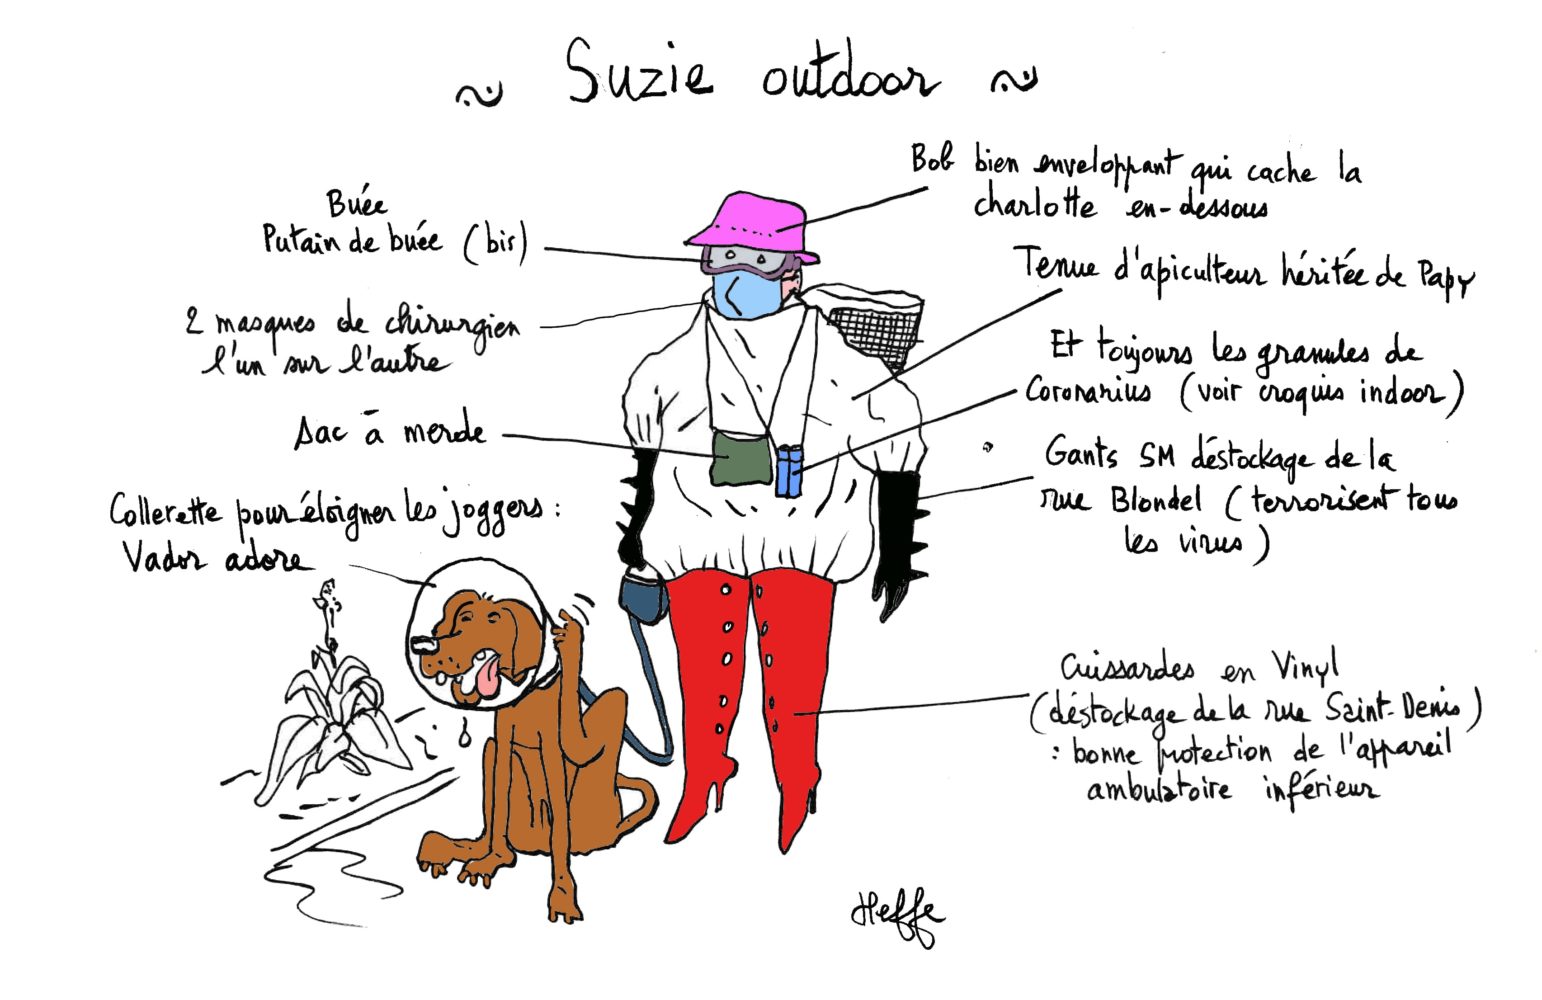 Suzie outdoor
Bob bien enveloppant qui cache la
charlotte en-dessous
Buée
Putain de buée (bis)
Tenue d'apiculteur héritée de Papy
2 masques de chirurgien
l'un sur l'autre
Et toujours les granules de
Coronarius (voir croquis indoor)
Sac à merde
Gants SM déstockage de la
rue Blondel (terrorisent tous
les virus)
Collerette pour éloigner les joggers :
Vador adore
Cuissardes en Vinyl
(déstockage de la rue Saint-Denis)
: bonne protection de l'appareil
ambulatoire inférieur
Heffe